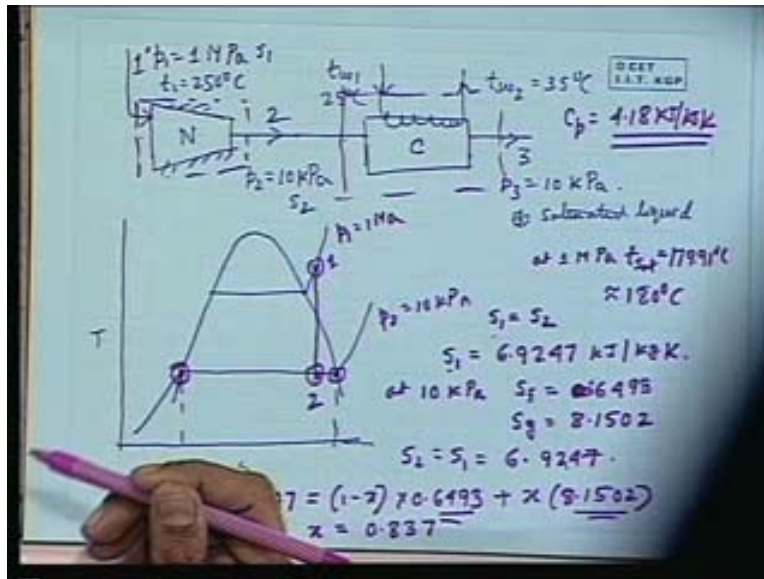 1 p₁ = 1 MPa s₁
t₁ = 250°C
N
2
p₂ = 10 kPa
s₂
tω₁
25°C
tω₂ = 35°C
C
3
p₃ = 10 kPa.
saturated liquid
D CET
I.I.T. KGP
Cp = 4.18 KJ/kgK
at 1 MPa tsat = 179.91°C
≈ 180°C
T
p₁ = 1 MPa
1
p₂ = 10 kPa
2
s₁ = s₂
s₁ = 6.9247 kJ/kgK.
at 10 kPa sf = 0.6493
sg = 8.1502
s₂ = s₁ = 6.9247.
47 = (1-x) x 0.6493 + x (8.1502)
x = 0.837